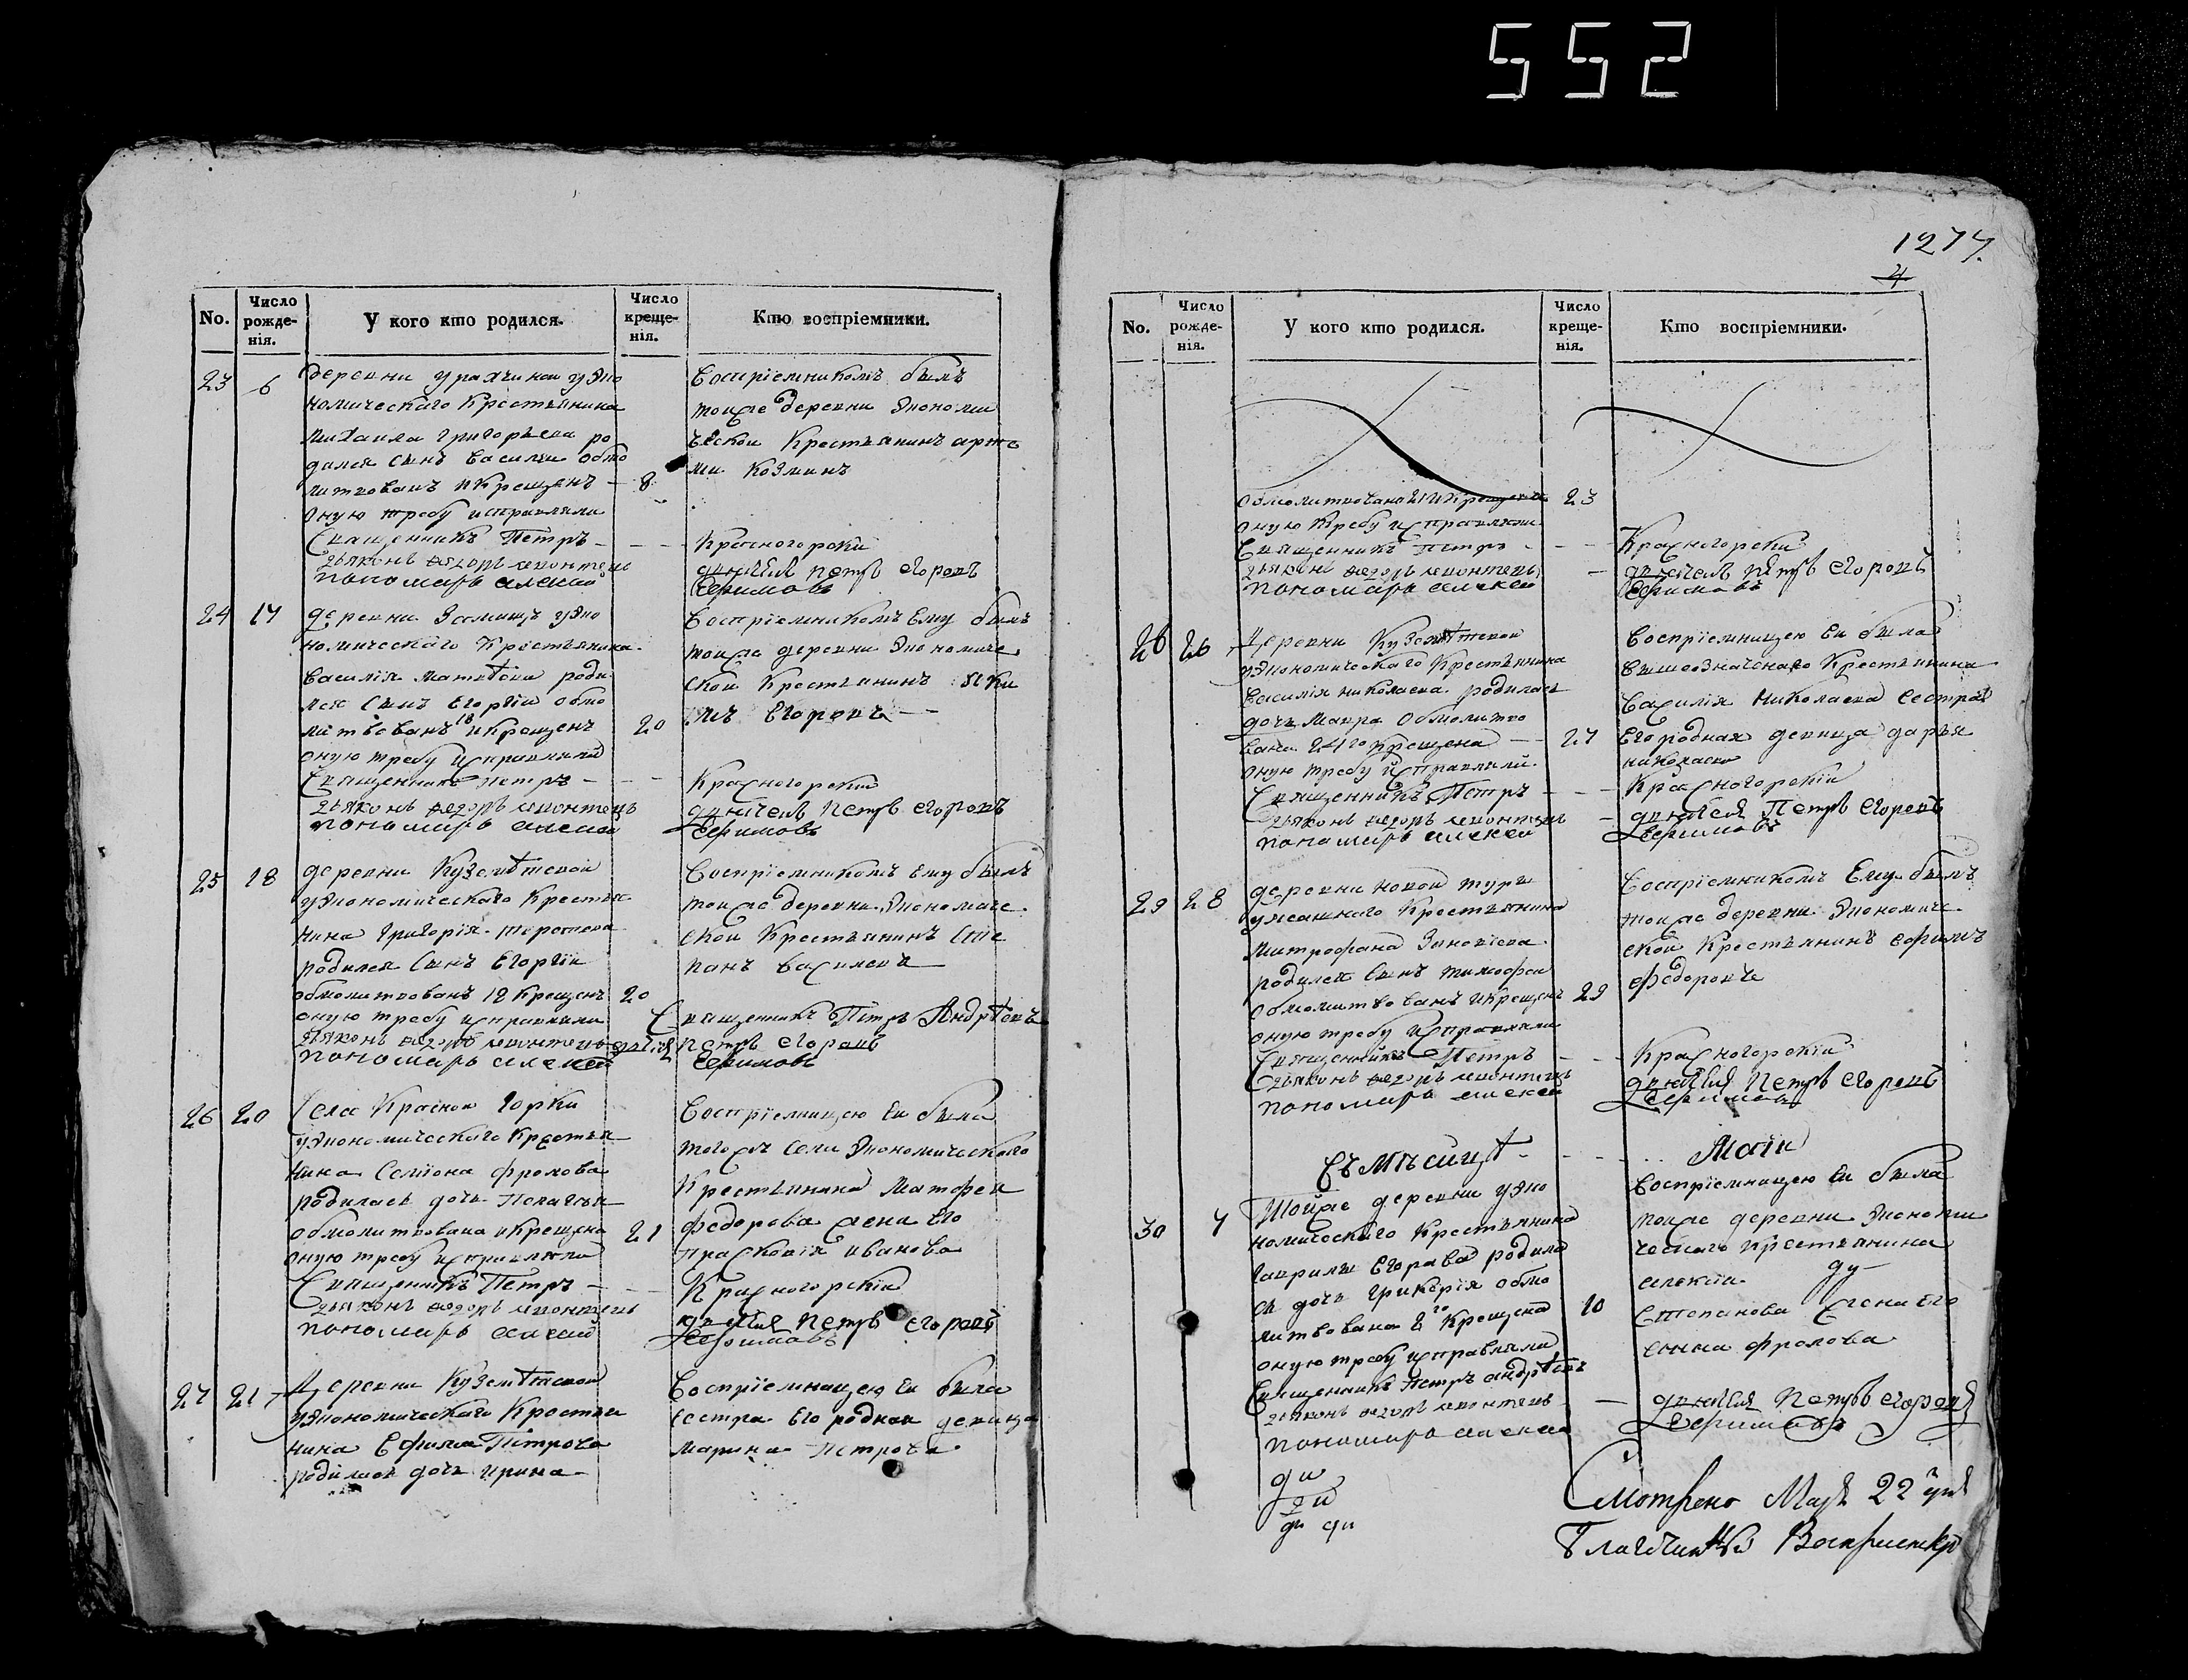 552
1277.
4
No.
Число рожде-нія.
У кого кто родился.
Число креще-нія.
Кто воспріемники.
23 6 деревни уэко
номическаго Крестьянина
михаила григорьева ро
дился сынъ василеи обмо
литвованъ и крещенъ — 8
оную требу исправляли
Священникъ Петръ —
дьяконъ федоръ леонтевъ
пономарь алексеи
Воспріемникомъ былъ
тоиже деревни Экономи
ческои Крестьянинъ арте
ми Козминъ
Красногорскіи
дьячекъ петръ егоровъ
Ефимовъ
24 17 деревни уэко
номическаго Крестьянина
василія матвѣева роди
лся сынъ Егоргіи обмо
литвованъ 18 и крещенъ 20
оную требу исправляли
Священникъ петръ —
дьяконъ федоръ леонтевъ
пономарь алексеи
Воспріемникомъ Ему былъ
тоиже деревни Экономиче
скои Крестьянинъ яки
мъ Егоровъ —
Красногорскіи
дьячекъ петръ егоровъ
Ефимовъ
25 18 деревни Кузем
уэкономическаго Крестья
нина григорія
родился сынъ Егоргіи
обмолитвованъ 18 крещенъ 20
оную требу исправляли
дьяконъ федоръ леонтевъ
пономарь алексеи
Воспріемникомъ Ему былъ
тоиже деревни Экономиче
скои Крестьянинъ сте
панъ васильевъ
Священникъ Петръ Андрѣевъ
дьячекъ петръ егоровъ
Ефимовъ
26 20 Села Краснои горки
уэкономическаго Крестья
нина Семіона фролова
родилась дочь Пелагея
обмолитвована и крещена 21
оную требу исправляли
Священникъ Петръ —
дьяконъ федоръ леонтевъ
пономарь алексеи
Воспріемницею Еи была
тогожъ села Экономическаго
Крестьянина Матфеи
федорова жена Его
прасковія иванова
Красногорскіи
дьячекъ петръ егоровъ
Ефимовъ
27 21 Деревни Кузем
уэкономическаго Крестья
нина Ефима Петрова
родилась дочь ирина
Воспріемницею Еи была
сестра Его родная девица
марина Петрова
No.
Число рожде-нія.
У кого кто родился.
Число креще-нія.
Кто воспріемники.
обмолитвована и крещена 23
оную требу исправляли
Священникъ петръ
дьяконъ федоръ леонтевъ
пономарь алексеи
Красногорскіи
дьячекъ петръ егоровъ
Ефимовъ
28 26 Деревни Кузем
уэкономическаго Крестьянина
василія николаева родилась
дочь мавра обмолитво
вана крещена — 27
оную требу исправляли
Священникъ Петръ
дьяконъ федоръ леонтевъ
пономарь алексеи
Воспріемницею Еи была
вышеозначенаго Крестьянина
василія николаева сестра
Его родная девица дарья
николаева
Красногорскіи
дьячекъ Петръ егоровъ
Ефимовъ
29 28 деревни новои туры
Крестьянина
митрофана Зиновіева
родился сынъ тимофеи
обмолитвованъ и крещенъ 29
оную требу исправляли
Священникъ Петръ
дьяконъ федоръ леонтевъ
пономарь алексеи
Воспріемникомъ Ему былъ
тоиже деревни Экономиче
скои Крестьянинъ ефимъ
федоровъ
Красногорскіи
дьячекъ петръ егоровъ
Ефимовъ
Въ мѣсицѣ — Маіи
30 7 Тоиже деревни уэко
номическаго Крестьянина
гаврилы Егорова родила
сь дочь гликерія обмо
литвована крещена 10
оную требу исправляли
Священникъ петръ андрѣевъ
дьяконъ федоръ леонтевъ
пономарь алексеи
Воспріемницею Еи была
тоиже деревни Экономи
ческаго Крестьянина
алексіи
степанова жена Его
анна фролова
дьячекъ петръ егоровъ
Ефимовъ
ди
ди
ди ди
Смотрено Маія 22 дня